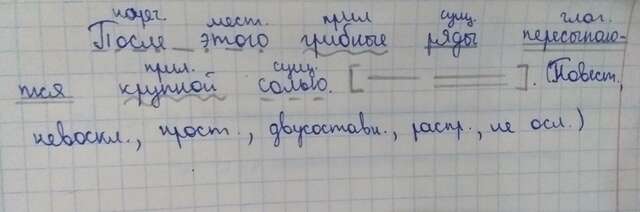 нареч. мест. прил сущ. глаг.
После этого грибные ряды пересыпаю-
прил. сущ.
тся крупной солью. [ ]. (Повест.,
невоскл., прост., двусоставн., распр., не осл.)